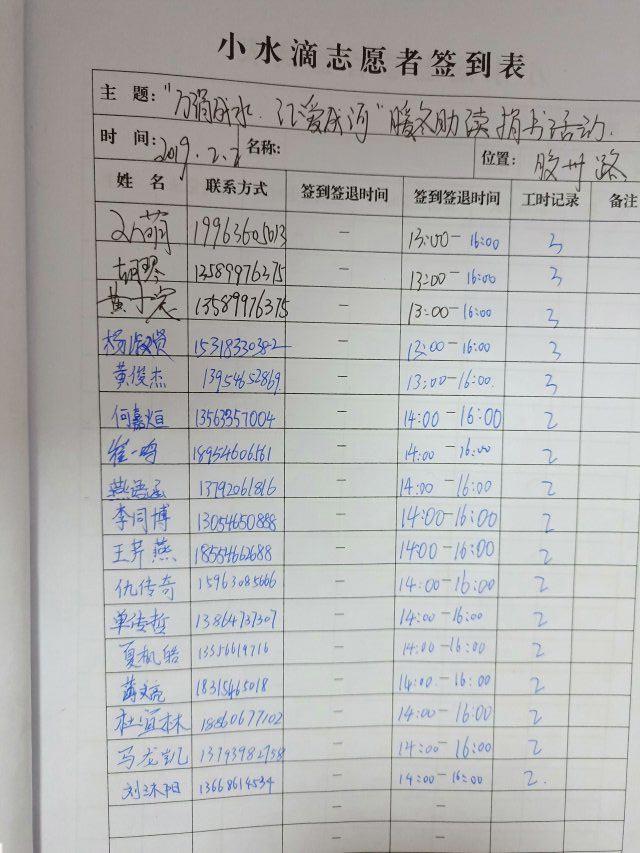 小水滴志愿者签到表
主 题："力涓成水.汇爱成河"暖冬助读捐书活动.
时 间：2019.2.2 名称： 位置：胶州路
姓 名 联系方式 签到签退时间 签到签退时间 工时记录 备注
萌 19963605013 — 13:00-16:00 3
胡琴 13589976375 — 13:00-16:00 3
黄 13589976375 — 13:00-16:00 3
杨淑贤 15318330382 — 13:00-16:00 3
黄俊杰 13954652869. — 13:00-16:00. 3
何嘉烜 13563357004 — 14:00-16:00 2
崔一鸣 18954606561 — 14:00-16:00 2
燕语涵 13792061816 — 14:00-16:00 2
李同博 13054650888 — 14:00-16:00 2
王芹燕 18554662688 — 14:00-16:00 2
仇传奇 15963085666 — 14:00-16:00 2
单传哲 13864737307 — 14:00-16:00 2
夏枫皓 13356619716 — 14:00-16:00 2
18315465018 — 14:00-16:00 2
杜宜林 18860677102 — 14:00-16:00 2
马龙凯 13793982758 — 14:00-16:00 2
刘沐阳 13668614534 — 14:00-16:00 2.
—
—